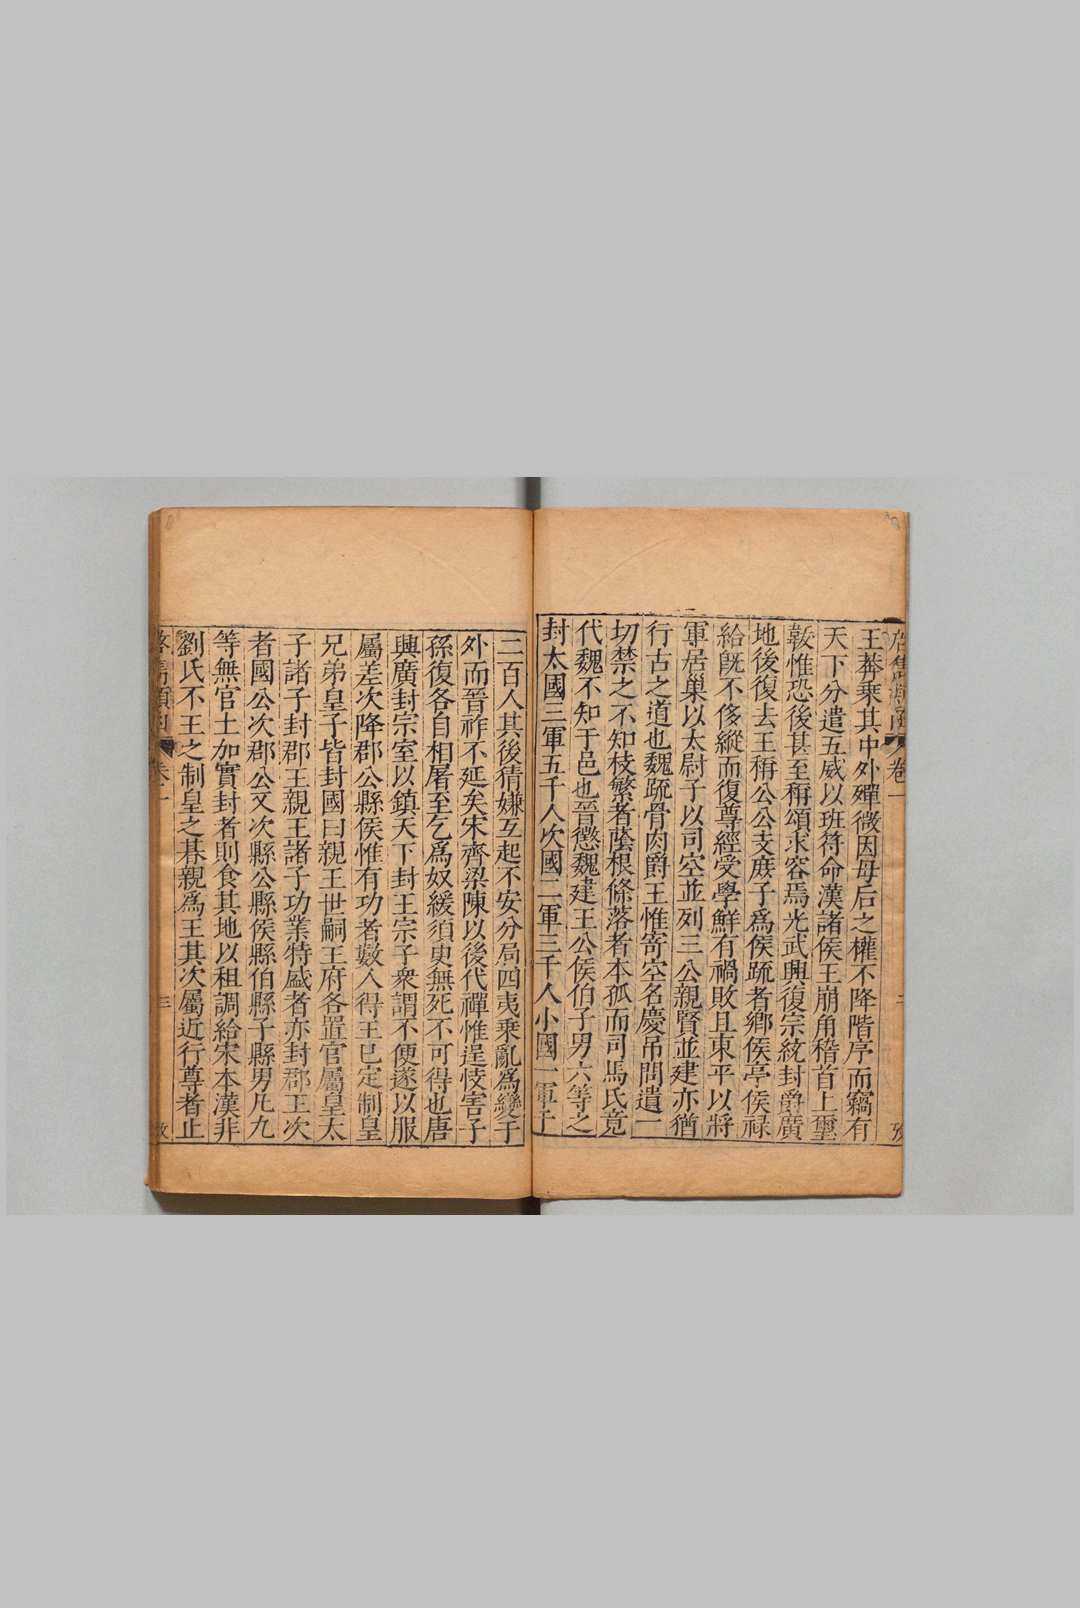 卷一
王莽乘其中外殫微因母后之權不降階序而竊有
天下分遣五威以班符命漢諸侯王崩角稽首上璽
韍惟恐後甚至稱頌求容焉光武興復宗統封爵廣
地後復去王稱公公支庶子為侯疏者鄉侯亭侯祿
給旣不侈縱而復尊經受學鮮有禍敗且東平以將
軍居巢以太尉子以司空並列三公親賢並建亦猶
行古之道也魏疏骨肉爵王惟寄空名慶吊問遺一
切禁之不知枝繁者蔭根條落者本孤而司馬氏竟
代魏不知于邑也晉懲魏建王公侯伯子男六等之
封大國三軍五千人次國二軍三千人小國一軍千
二百人其後猜嫌互起不安分局四夷乘亂為變于
外而晉祚不延矣宋齊梁陳以後代禪惟逞忮害子
孫復各自相屠至乞為奴緩須臾無死不可得也唐
興廣封宗室以鎮天下封王宗子衆謂不便遂以服
屬差次降郡公縣侯惟有功者數人得王已定制皇
兄弟皇子皆封國曰親王世嗣王府各置官屬皇太
子諸子封郡王親王諸子功業特盛者亦封郡王次
者國公次郡公又次縣公縣侯縣伯縣子縣男凡九
等無官土加實封者則食其地以租調給宋本漢非
劉氏不王之制皇之朞親為王其次屬近行尊者止
卷一
三